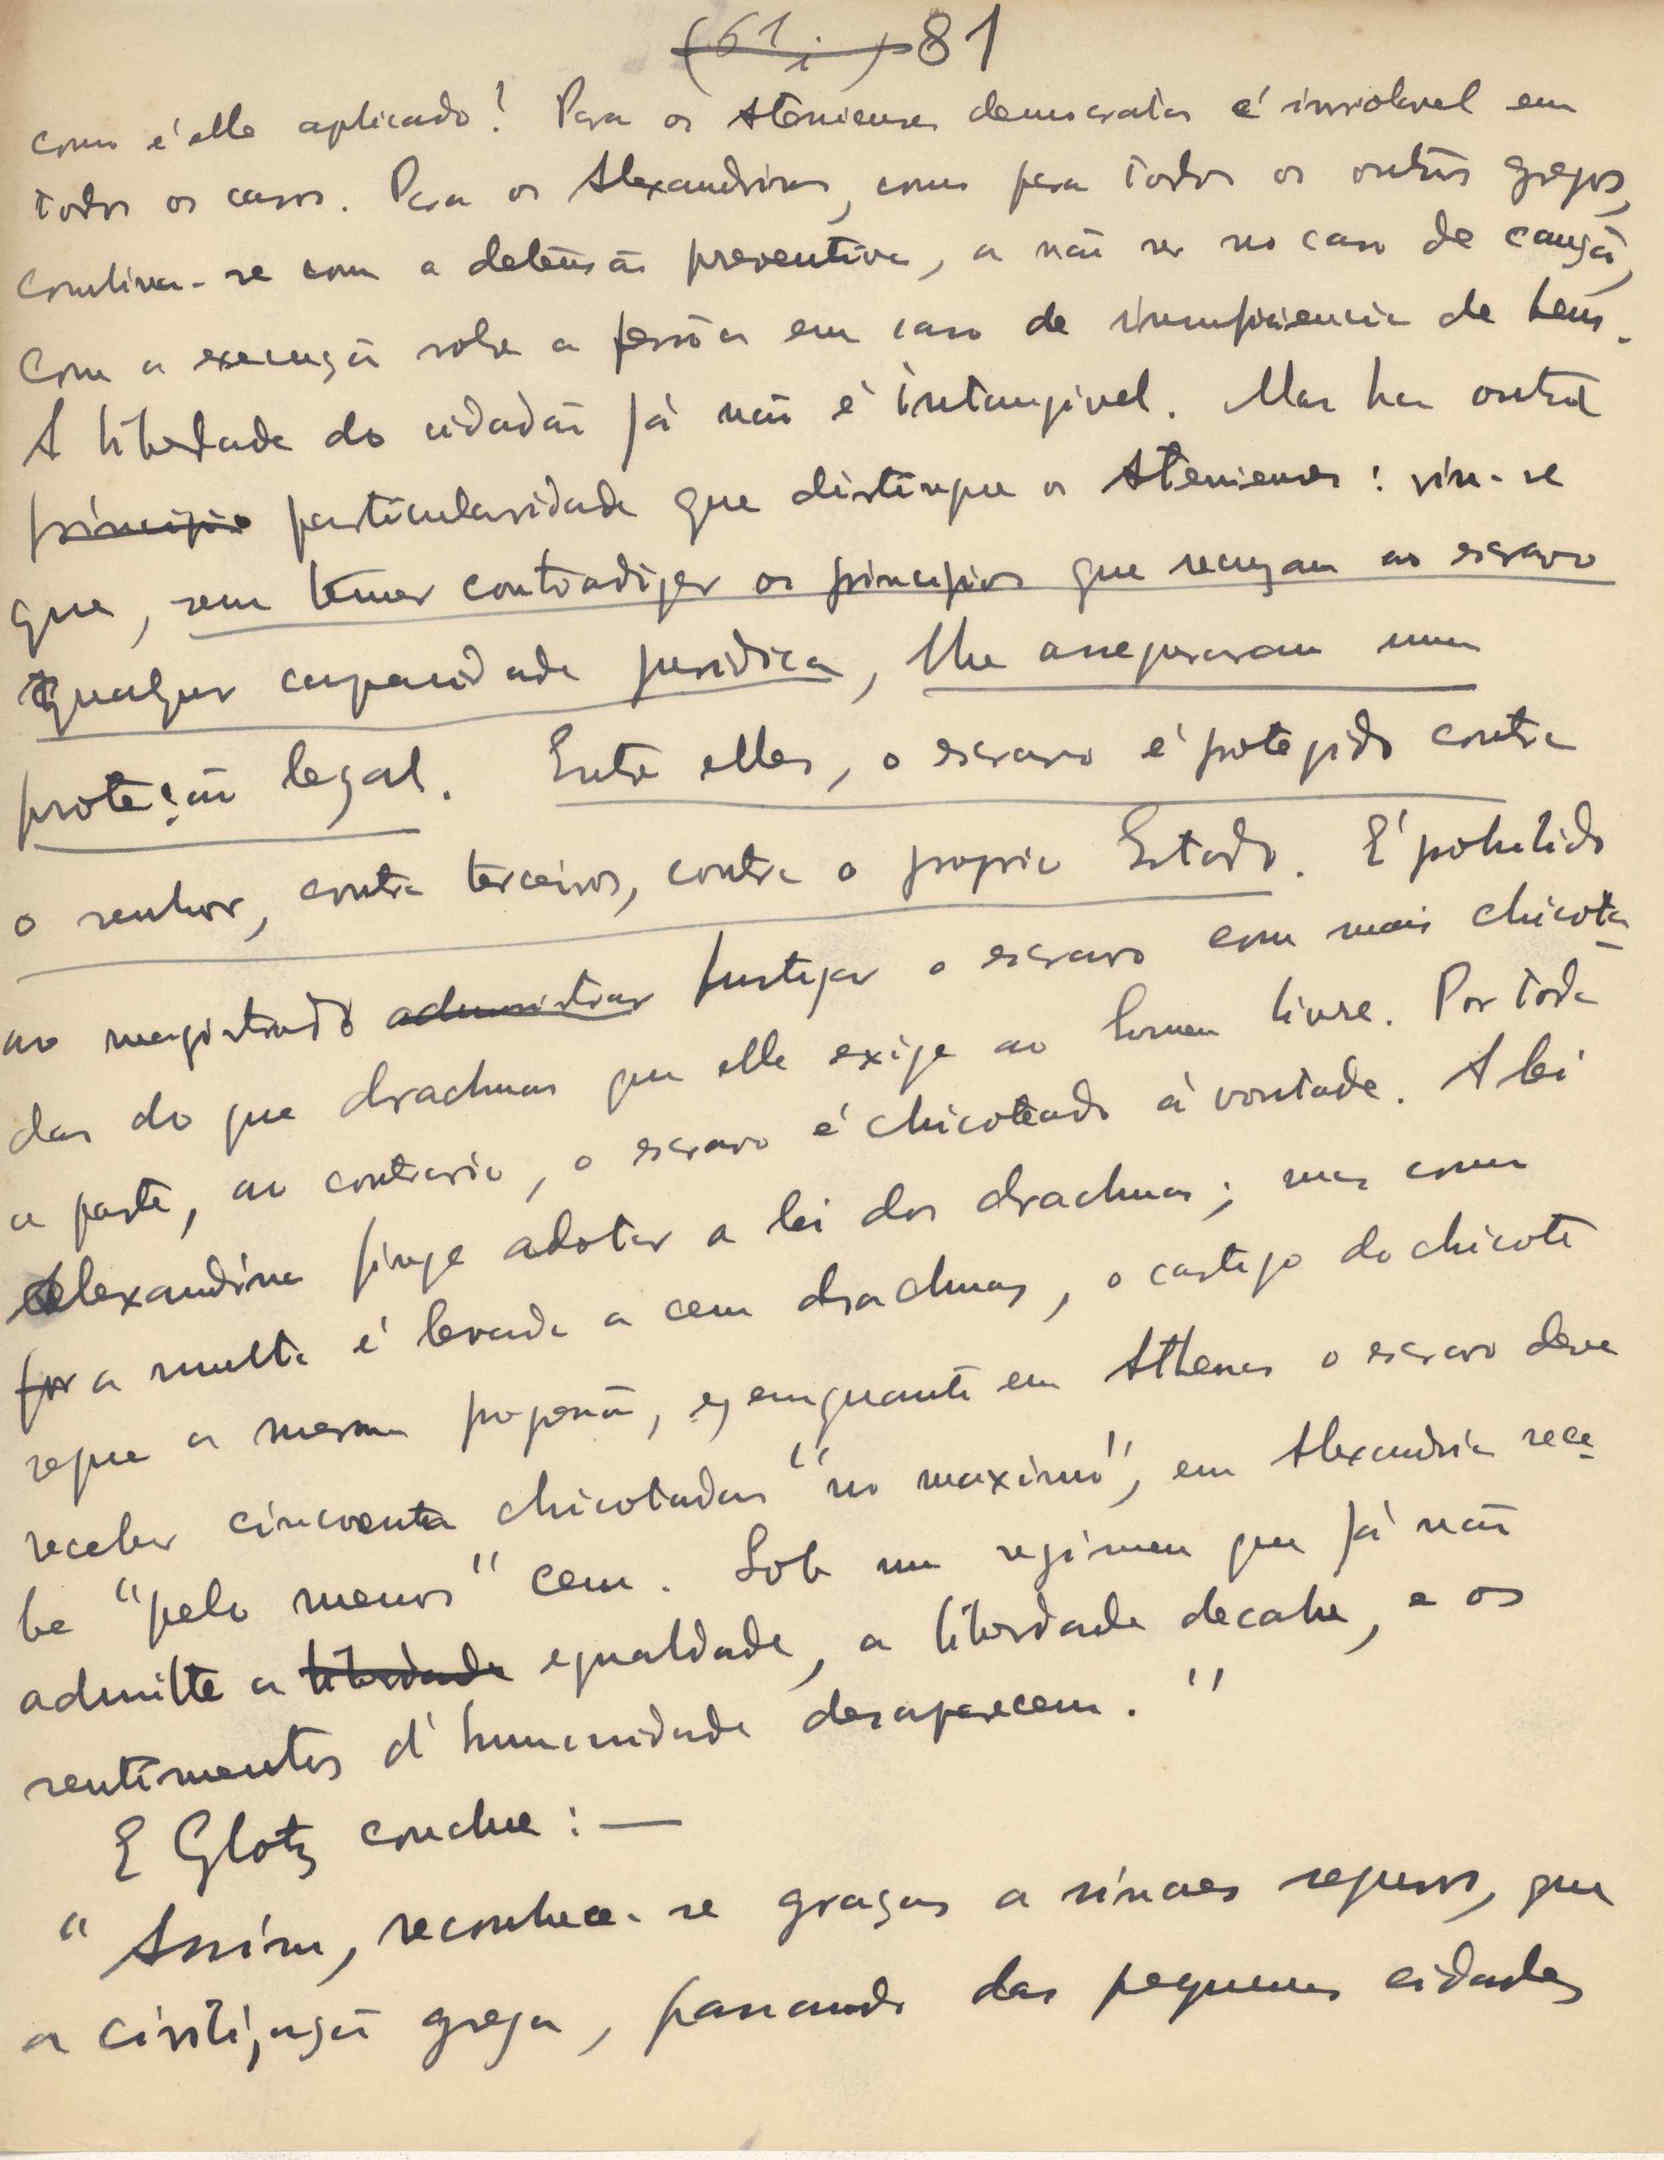 (61 i) 81
como é elle aplicado! Para os Atenienses democratas é inviolavel em
todos os casos. Para os Alexandrinos, como para todos os outros gregos,
combina-se com a detensão preventiva, a não ser no caso de caução,
com a execução sobre a pessôa em caso de insuficiencia de bens.
A liberdade do cidadão já não é intangivel. Mas ha outra
principio particularidade que distingue os Atenienses: viu-se
que, sem temer contradizer os principios que recuzam ao escravo
qualquer capacidade juridica, lhe asseguraram uma
proteção legal. Entre elles, o escravo é protegido contra
o senhor, contra terceiros, contra o proprio Estado. É prohibido
ao magistrado administrar fustigar o escravo com mais chicota-
das do que drachmas que elle exige ao homem livre. Por toda
a parte, ao contrario, o escravo é chicoteado á vontade. A lei
Alexandrina finge adotar a lei dos drachmas; mas como
a multa é levada a cem drachmas, o castigo do chicote
segue a mesma proporsão, e, emquanto em Athenas o escravo deve
receber cincoenta chicotadas "no maximo", em Alexandria rece-
be "pelo menos" cem. Sob um regimen que já não
admitte a liberdade egualdade, a liberdade decahe, e os
sentimentos d'humanidade desaparecem."
E Glotz conclue: —
"Assim, reconhece-se graças a sinaes seguros, que
a civilização grega, passando das pequenas cidades